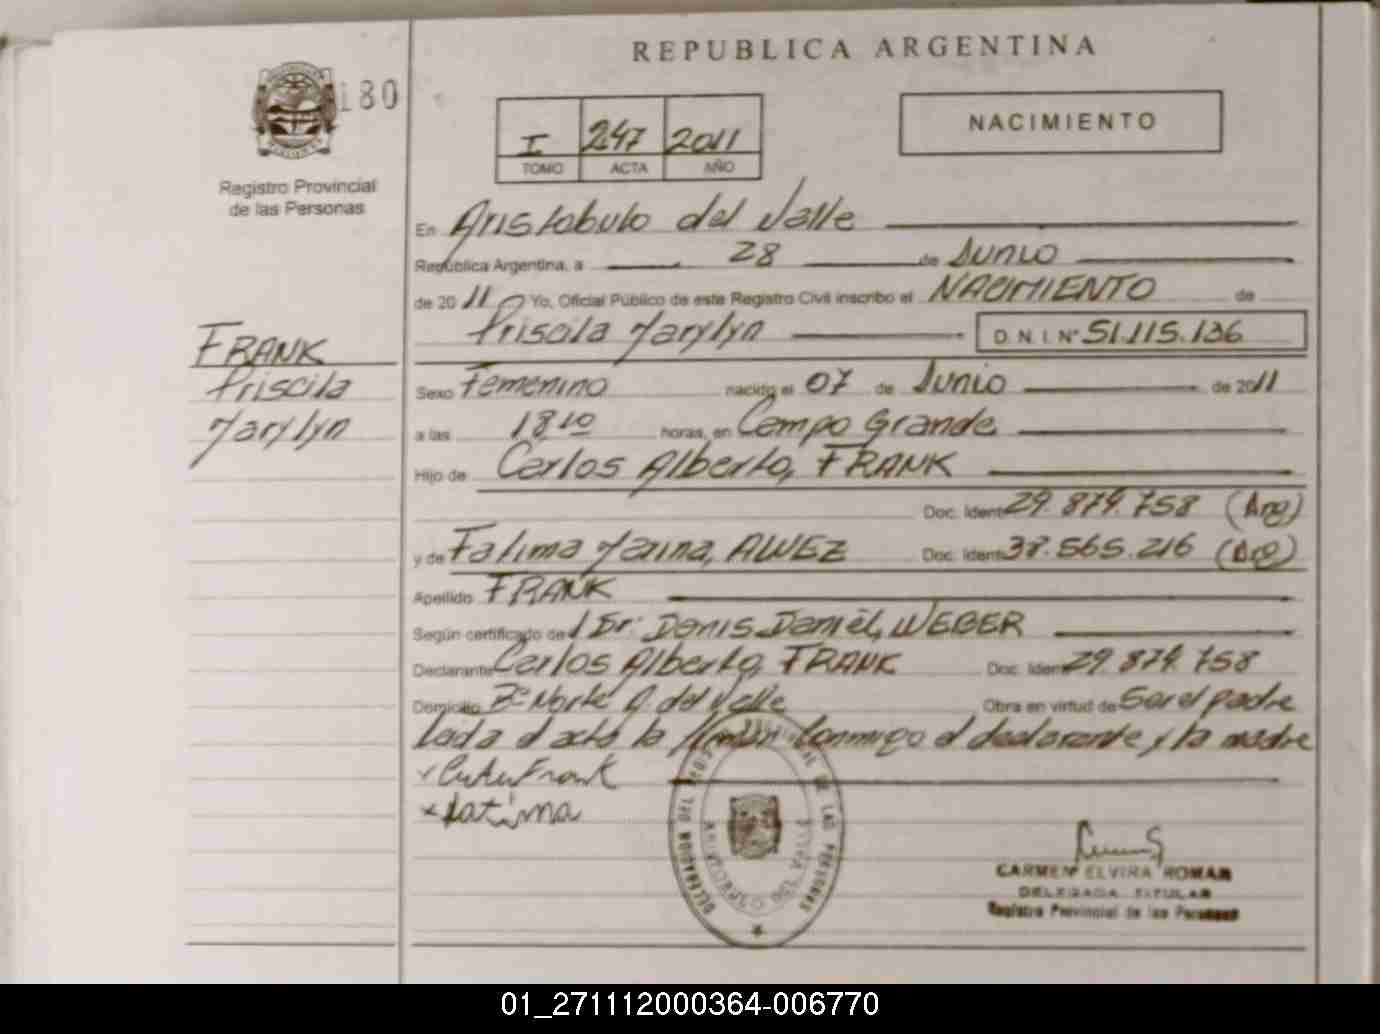 REPUBLICA ARGENTINA
180
NACIMIENTO
I 247 2011
TOMO ACTA AÑO
Registro Provincial
de las Personas
En Aristobulo del Valle
República Argentina, a 28 de Junio
de 2011 Yo, Oficial Público de este Registro Civil inscribo el NACIMIENTO de
Priscila Marylyn D.N.I. Nº 51.115.136
FRANK
Priscila
Marylyn
Sexo Femenino nacido el 07 de Junio de 2011
a las 18 10 horas, en Campo Grande
Hijo de Carlos Alberto, FRANK
Doc. Ident. 29.874.758 (Arg)
y de Fatima Marina, ALVEZ Doc. Ident. 38.565.216 (Arg)
Apellido FRANK
Según certificado del Dr: Denis Daniel, WEBER
Declarante Carlos Alberto, FRANK Doc. Ident. 29.874.758
Domicilio Bº Norte A. del Valle Obra en virtud de Ser el padre
Leida el acta la firman conmigo el declarante y la madre
x Frank
x Fatima
REGISTRO PROVINCIAL DE LAS PERSONAS
CARMEN ELVIRA ROMAN
DELEGADA TITULAR
Registro Provincial de las Personas
01_271112000364-006770